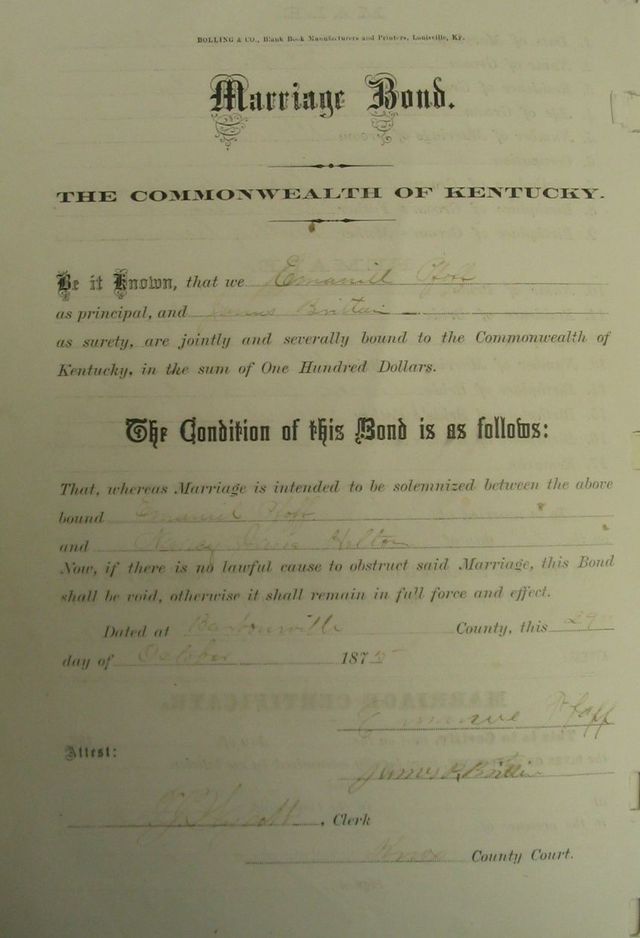 BOLLING & CO., Blank Book Manufacturers and Printers, Louisville, Ky.
Marriage Bond.
THE COMMONWEALTH OF KENTUCKY.
Be it Known, that we Emanuel Pfoff
as principal, and James Brittain
as surety, are jointly and severally bound to the Commonwealth of
Kentucky, in the sum of One Hundred Dollars.
The Condition of this Bond is as follows:
That, whereas Marriage is intended to be solemnized between the above
bound Emanuel
and Nancy Hilton
Now, if there is no lawful cause to obstruct said Marriage, this Bond
shall be void, otherwise it shall remain in full force and effect.
Dated at Barbourville County, this 29
day of October 1875
Pfaff
Attest:
James Brittain
, Clerk
Knox County Court.